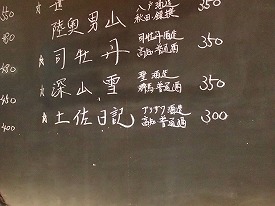 550
八戸酒造 350
秋田
480
陸奥男山
司牡丹酒造 350
高知 普通酒
480
司牡丹
聖酒造 350
群馬 普通酒
450
深山雪
400
土佐日記
高知 普通酒 300